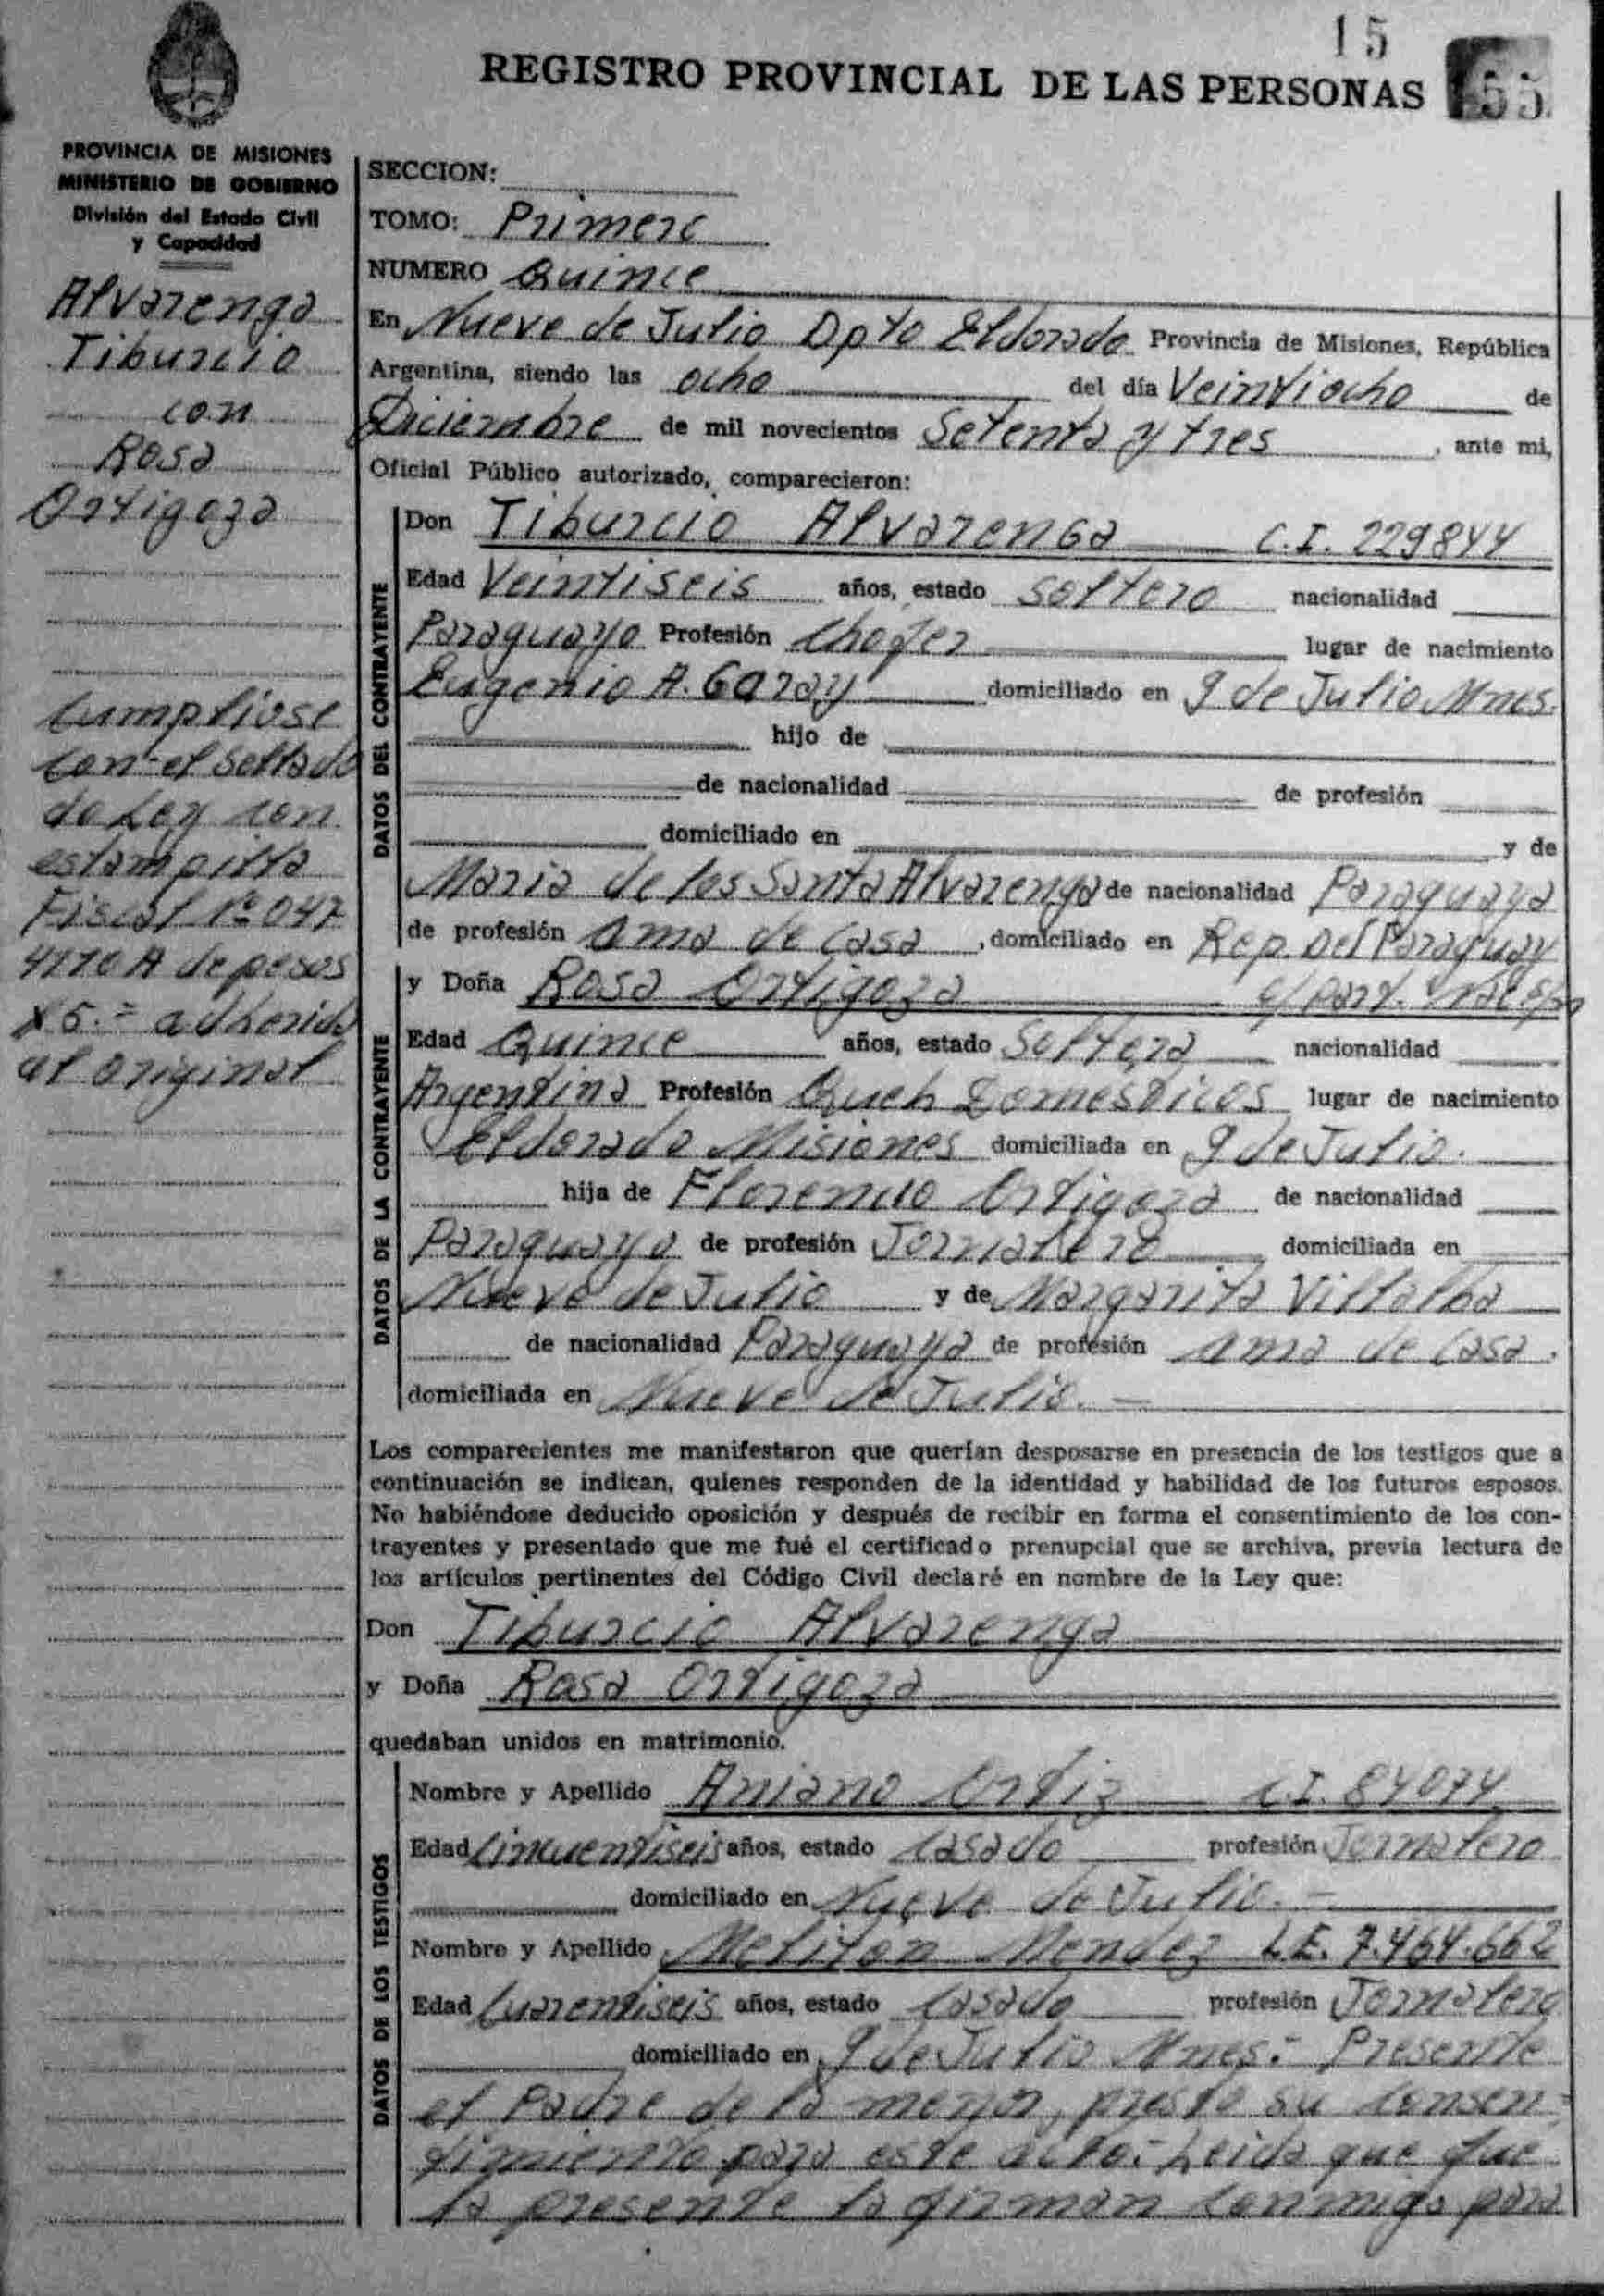 15
REGISTRO PROVINCIAL DE LAS PERSONAS 55
PROVINCIA DE MISIONES
MINISTERIO DE GOBIERNO
División del Estado Civil
y Capacidad
Alvarenga
Tiburcio
con
Rosa
Ortigoza
Cumpliose
con el Sellado
de Ley con
estampilla
Fiscal Nº 047
4170 A de pesos
$ 5.= adherido
al original
SECCION:
TOMO: Primero
NUMERO Quince
En Nueve de Julio Dpto Eldorado Provincia de Misiones, República
Argentina, siendo las ocho del día Veintiocho de
Diciembre de mil novecientos Setenta y tres, ante mi,
Oficial Público autorizado, comparecieron:
DATOS DEL CONTRAYENTE
Don Tiburcio Alvarenga C.I. 229844
Edad Veintiseis años, estado soltero nacionalidad
Paraguayo Profesión Chofer lugar de nacimiento
Eugenio A. Garay domiciliado en 9 de Julio Mnes.
hijo de
de nacionalidad de profesión
domiciliado en y de
Maria de los Santa Alvarenga de nacionalidad Paraguaya
de profesión ama de casa, domiciliado en Rep. Del Paraguay
DATOS DE LA CONTRAYENTE
y Doña Rosa Ortigoza c/ part.
Edad Quince años, estado Soltera nacionalidad
Argentina Profesión Queh Domesticos lugar de nacimiento
Eldorado Misiones domiciliada en 9 de Julio.
hija de Florencio Ortigoza de nacionalidad
Paraguayo de profesión Jornalero domiciliada en
Nueve de Julio y de Margarita Villalba
de nacionalidad Paraguaya de profesión ama de casa.
domiciliada en Nueve de Julio.-
Los comparecientes me manifestaron que querían desposarse en presencia de los testigos que a
continuación se indican, quienes responden de la identidad y habilidad de los futuros esposos.
No habiéndose deducido oposición y después de recibir en forma el consentimiento de los con-
trayentes y presentado que me fué el certificado prenupcial que se archiva, previa lectura de
los artículos pertinentes del Código Civil declaré en nombre de la Ley que:
Don Tiburcio Alvarenga
y Doña Rosa Ortigoza
quedaban unidos en matrimonio.
DATOS DE LOS TESTIGOS
Nombre y Apellido Aniano Ortiz C.I. 84074
Edad Cincuentiseis años, estado casado profesión Jornalero
domiciliado en Nueve de Julio.-
Nombre y Apellido Meliton Mendez L.E. 7.464.662
Edad Cuarentiseis años, estado casado profesión Jornalero
domiciliado en 9 de Julio Mnes.- Presente
el Padre de la menor, presto su consen-
timiento para este acto.- Leida que fue
la presente la firman conmigo para